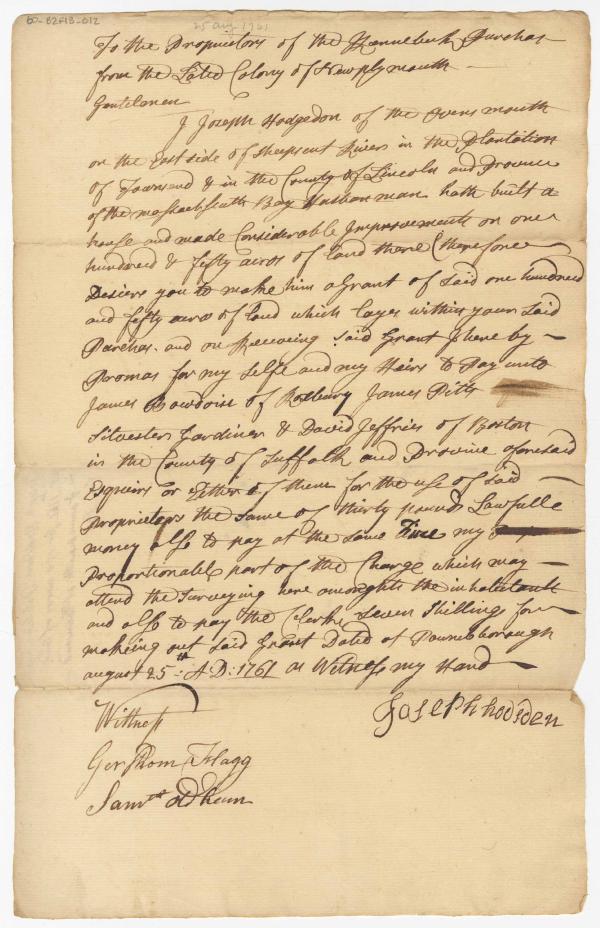 60-B2F13-012
25 aug 1761
To the Proprietors of the Kennebeck Purchas
from the Lated Colony of Newplymouth
Gentelmen
I Joseph Hodgedon of the Ovens mouth
on the East side of Sheepscut River in the Plantation
of Townsend & in the County of Lincoln and Province
of the massachseath Bay Husbanman hath built a
house and made Considerable Improvements on one
hundred & fifty acros of land there (therefore
Desiers you to make him a Grant of Said one hundred
and fifty acros of land which layes within your Said
Purchas. and on Receving Said Grant I here by
Promas for my Selfe and my Heirs to Pay unto
James Bowdoin of Roxbury James Pitts
Silvester Gardiner & David Jeffries of Boston
in the County of Suffolk and Province aforesaid
Esquirs or Either of them for the use of Said
Proprietors the Same of thirty pounds Lawfulle
money also to pay at the Same Time my
Proportionable part of the Charge which may
attend the Surveying here amonghts the inhabitants
and also to pay the Clerke Seven Shilling for
makeing out Said Grant Dated at Pownelborough
august 25th A:D: 1761 as Witness my Hand
Joseph hodsden
Wittness
Gershom Flagg
Samll oldham